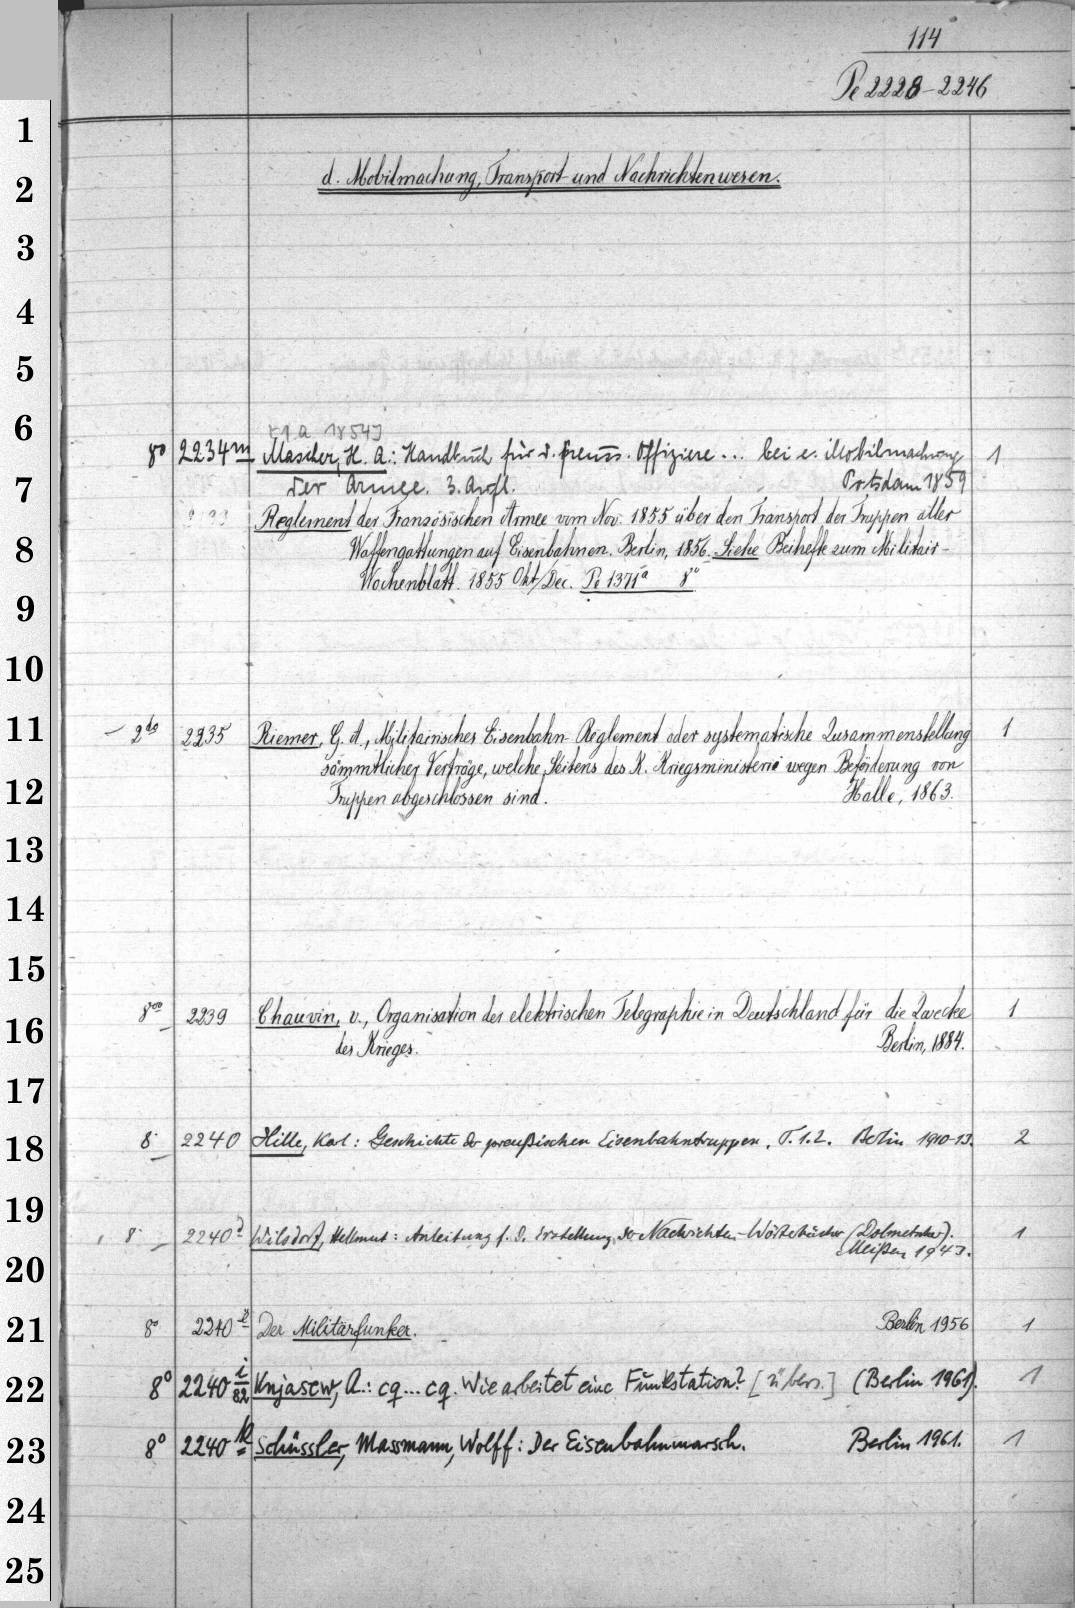 114
Pe 2228-2246
1
2
3
4
5
6
7
8
9
10
11
12
13
14
15
16
17
18
19
20
21
22
23
24
25
d. Mobilmachung, Transport und Nachrichtenwesen.
[1. A 1854]
8° 2234m Mascher, H. A.: Handbuch für d. preuss. Offiziere ... bei e. Mobilmachung 1
der Armee. 3. Aufl. Potsdam 1859
Reglement der Französischen Armee vom Nov. 1855 über den Transport der Truppen aller
Waffengattungen auf Eisenbahnen. Berlin, 1856. Siehe Beihefte zum Militair-
Wochenblatt. 1855 Okt/Dec. Pe 1371a 8°
2do 2235 Riemer, G. A., Militairisches Eisenbahn-Reglement oder systematische Zusammenstellung 1
sämmtlicher Verträge, welche Seitens des K. Kriegsministerii wegen Beförderung von
Truppen abgeschlossen sind. Halle, 1863.
8vo 2239 Chauvin, v., Organisation der elektrischen Telegraphie in Deutschland für die Zwecke 1
des Krieges. Berlin, 1884.
8° 2240 Hille, Karl: Geschichte der preußischen Eisenbahntruppen. T. 1.2. Berlin 1910-13. 2
8° 2240d Wilsdorf, Hellmut: Anleitung f. d. Erstellung der Nachrichten-Wörterbücher (Dolmetscher). 1
Meißen 1943.
8° 2240 Der Militärfunker. Berlin 1956 1
8° 2240 i/82 Knjasew, A.: cq ... cq. Wie arbeitet eine Funkstation? [übers.] (Berlin 1961). 1
8° 2240 k Schüssler, Massmann, Wolff: Der Eisenbahnmarsch. Berlin 1961. 1